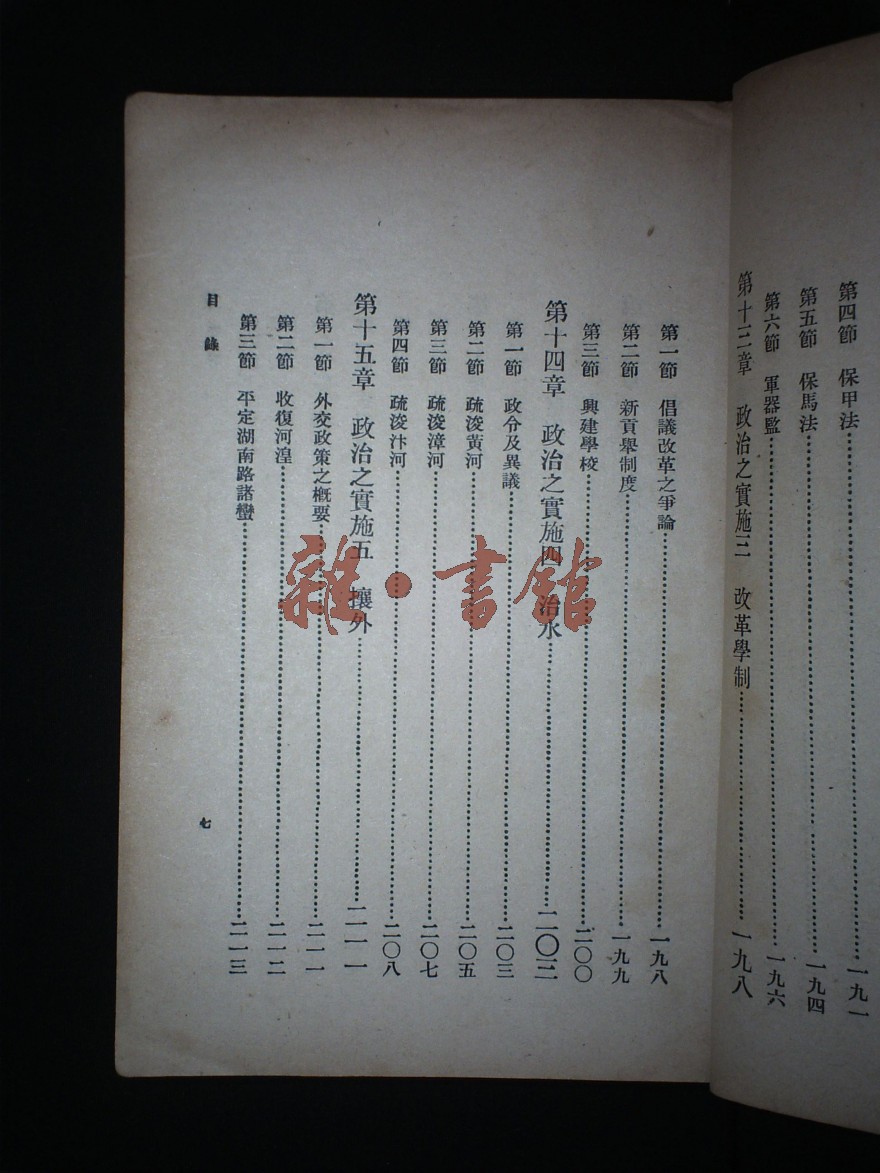 第四節　保甲法……一九一
第五節　保馬法……一九四
第六節　軍器監……一九六
第十三章　政治之實施三　改革學制……一九八
第一節　倡議改革之爭論……一九八
第二節　新貢舉制度……一九九
第三節　興建學校……二〇〇
第十四章　政治之實施四　治水……二〇三
第一節　政令及異議……二〇三
第二節　疏浚黃河……二〇五
第三節　疏浚漳河……二〇七
第四節　疏浚汴河……二〇八
第十五章　政治之實施五　攘外……二一一
第一節　外交政策之概要……二一一
第二節　收復河湟……二一二
第三節　平定湖南路諸蠻……二一三
目錄
七
雜·書館